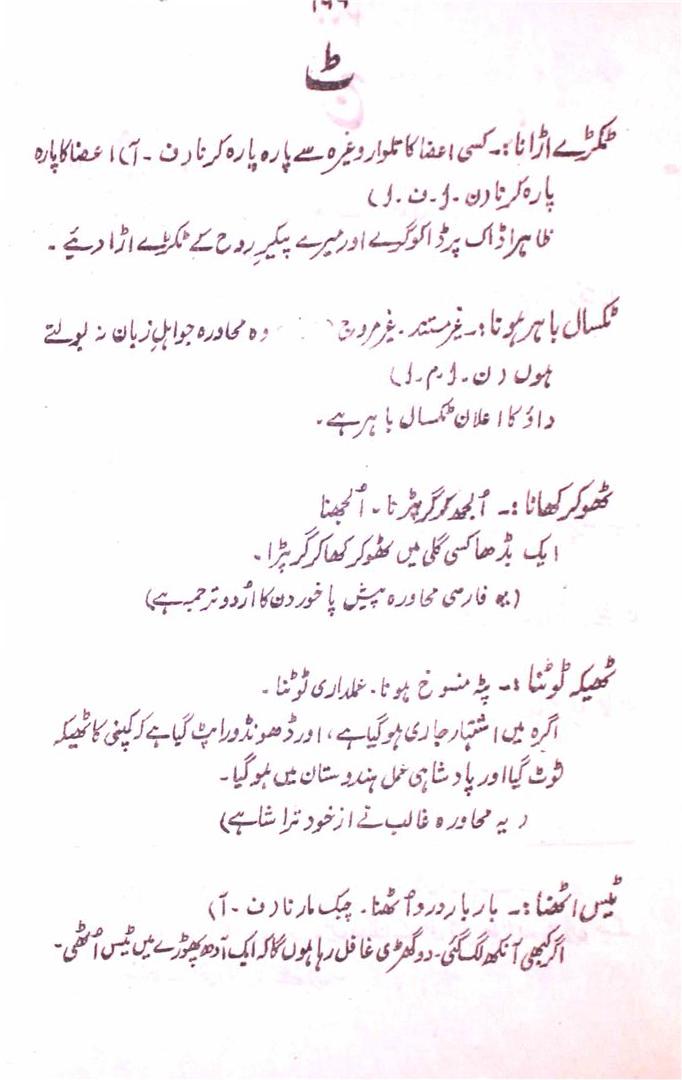 ٹ
ٹکڑے اڑانا :۔ کسی اعضا کا تلوار وغیرہ سے پارہ پارہ کرنا (ف ۔ آ) اعضا کا پارہ
پارہ کرنا (ن ۔ ا ۔ ف ۔ ا)
ظاہرا ڈاک پر ڈاکو گرے اور میرے پیکرِ روح کے ٹکڑے اڑا دیئے ۔
ٹکسال باہر ہونا :۔ غیر مستند ۔ غیر مروج ( وہ محاورہ جو اہلِ زبان نہ بولتے
ہوں (ن ۔ ا ۔ م ۔ ا)
داؤ کا اعلان ٹکسال باہر ہے ۔
ٹھوکر کھانا :۔ اُلجھ کر گر پڑنا ۔ اُلجھنا
ایک بڈھا کسی گلی میں ٹھوکر کھا کر گر پڑا ۔
(یہ فارسی محاورہ پیش پا خوردن کا اُردو ترجمہ ہے)
ٹھیکہ ٹوٹنا :۔ پٹہ منسوخ ہونا ۔ عملداری ٹوٹنا ۔
اگرہ میں اشتہار جاری ہو گیا ہے ، اور ڈھونڈورا پٹ گیا ہے کہ کمپنی کا ٹھیکہ
ٹوٹ گیا اور پادشاہی عمل ہندوستان میں ہو گیا ۔
(یہ محاورہ غالب نے از خود تراشا ہے)
ٹیس اٹھنا :۔ بار بار درد اُٹھنا ۔ چبک مارنا (ف ۔ آ)
اگر کبھی آنکھ لگ گئی ۔ دو گھڑی غافل رہا ہوں گا کہ ایک آدھ پھوڑے میں ٹیس اُٹھی ۔